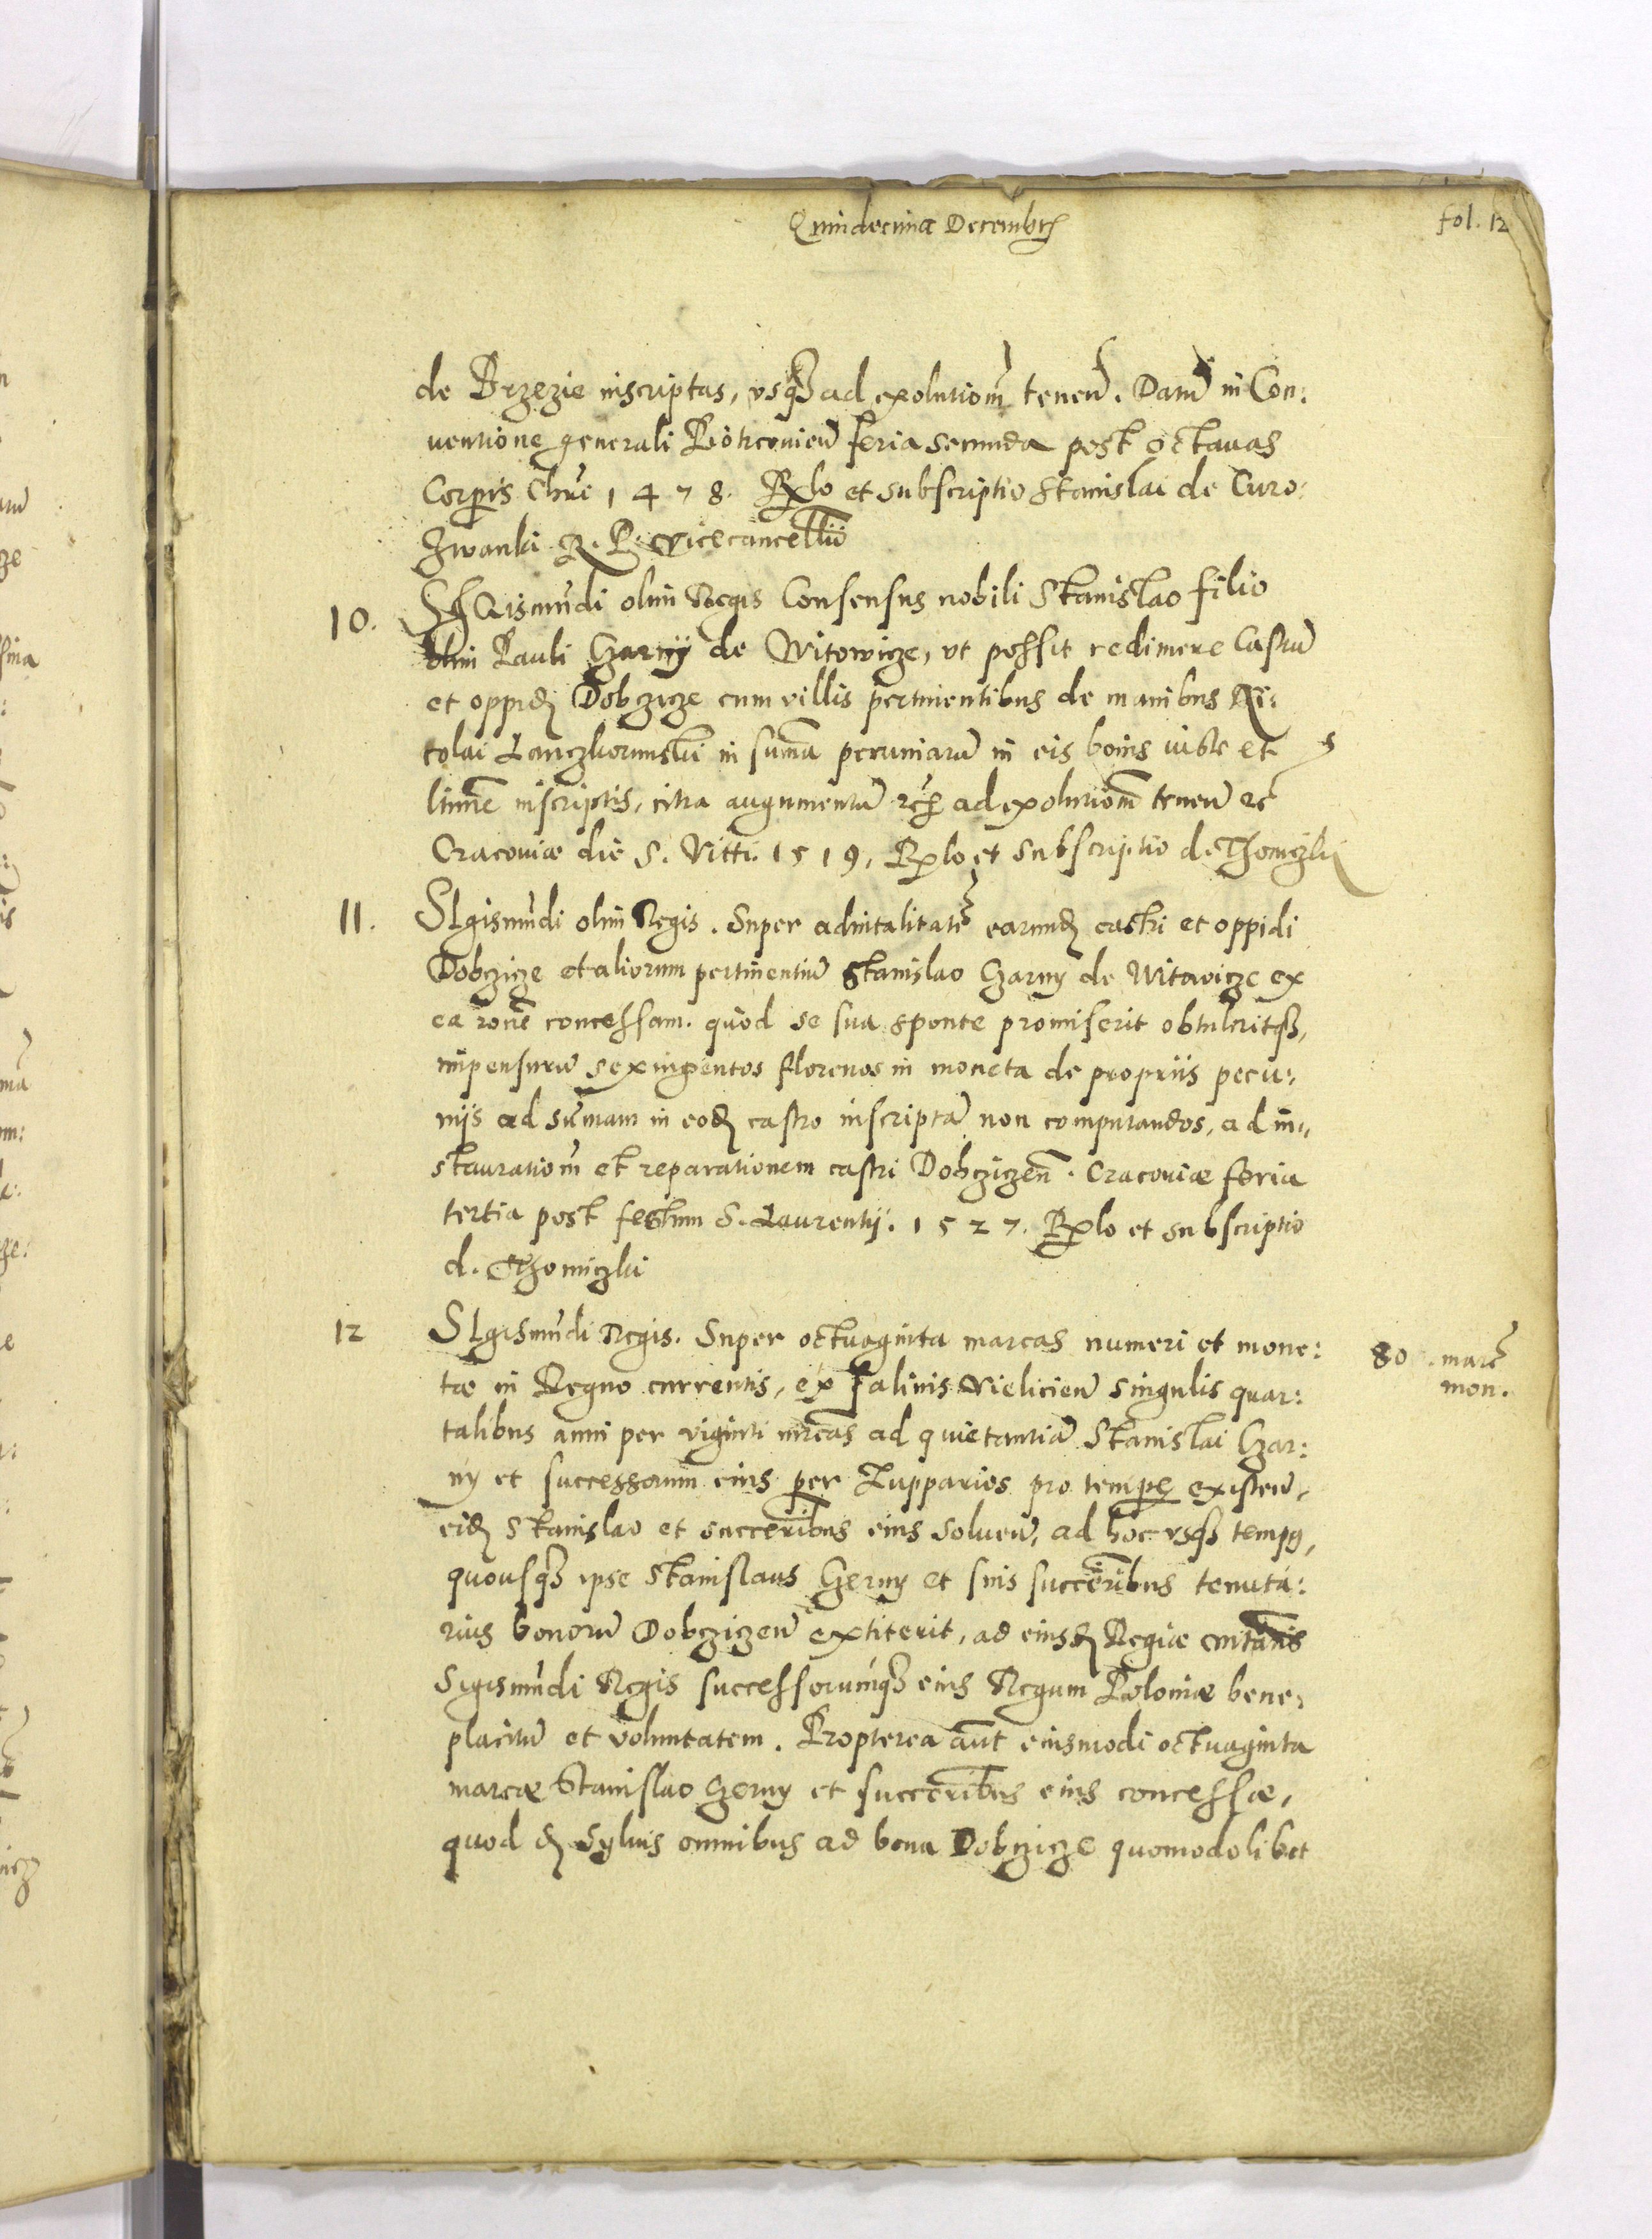 Quindecima Decembris
fol. 12
de Brzezie inscriptas, vsq3 ad exolutiom̃ tenen̄. Datū in Con:
uentione generali Piotrcouien̄ feria secunda post octauas
Corpris Chri 1478. Rlo et subscriptio Stanislai de Curo:
zwanki R. P. Vicecancellii
10. SIGismūdi olim Regis Consensus nobili Stanislao filio
olim Pauli Czarny de Witowicze, vt possit redimere Castrū
et oppid Dobczicze cum villis pertinentibus de manibus Ni:
colai Lanczkorunski in sum̃a pecuniarū in eis bonis iuste et
litime inscriptis, citra augmentū ad exolutiom̃ tenen̄ etc̃
Cracouiæ die S. Vitti. 1519, Rlo et subscriptio d. Thomiczki
11. SIgismūdi olim Regis. Super aduitalitatē earund castri et oppidi
Dobczicze et aliorum pertinentiū Stanislao Czarny de Witowicze ex
ea ronē concessam. quod se sua sponte promiserit obtuleritq3,
impensurū sexingentos florenos in moneta de propriis pecu:
niis ad sum̃am in eod castro inscriptā non computandos, ad in:
stauratiom̃ et reparationem castri Dobczizen̄. Cracouiæ feria
tertia post festum S. Laurentij. 1527. Rlo et subscriptio
d. Thomiczki
12 SIgismūdi Regis. Super octuaginta marcas numeri et mone:
80 marc̃
mon.
tæ in Regno currentis, ex salinis Vielicien̄ singulis quar:
talibus anni per viginti mrcas ad quietantiā Stanislai Czar:
ny et successorum eius per Zupparios pro tempe existen̄,
eid Stanislao et succeribus eius soluen̄, ad hoc vsq3 temp9,
quousq3 ipse Stanislaus Czerny et suis succeribus tenuta:
rius bonorū Dobczizen̄ extiterit, ad eiusd Regiæ
Sigismūdi Regis successorumq3 eius Regum Poloniæ bene:
placitū et voluntatem. Propterea aūt eiusmodi octuaginta
marcæ Stanislao Czerny et succeribus eius concessæ,
quod d syluis omnibus ad bona Dobczicze quomodolibet